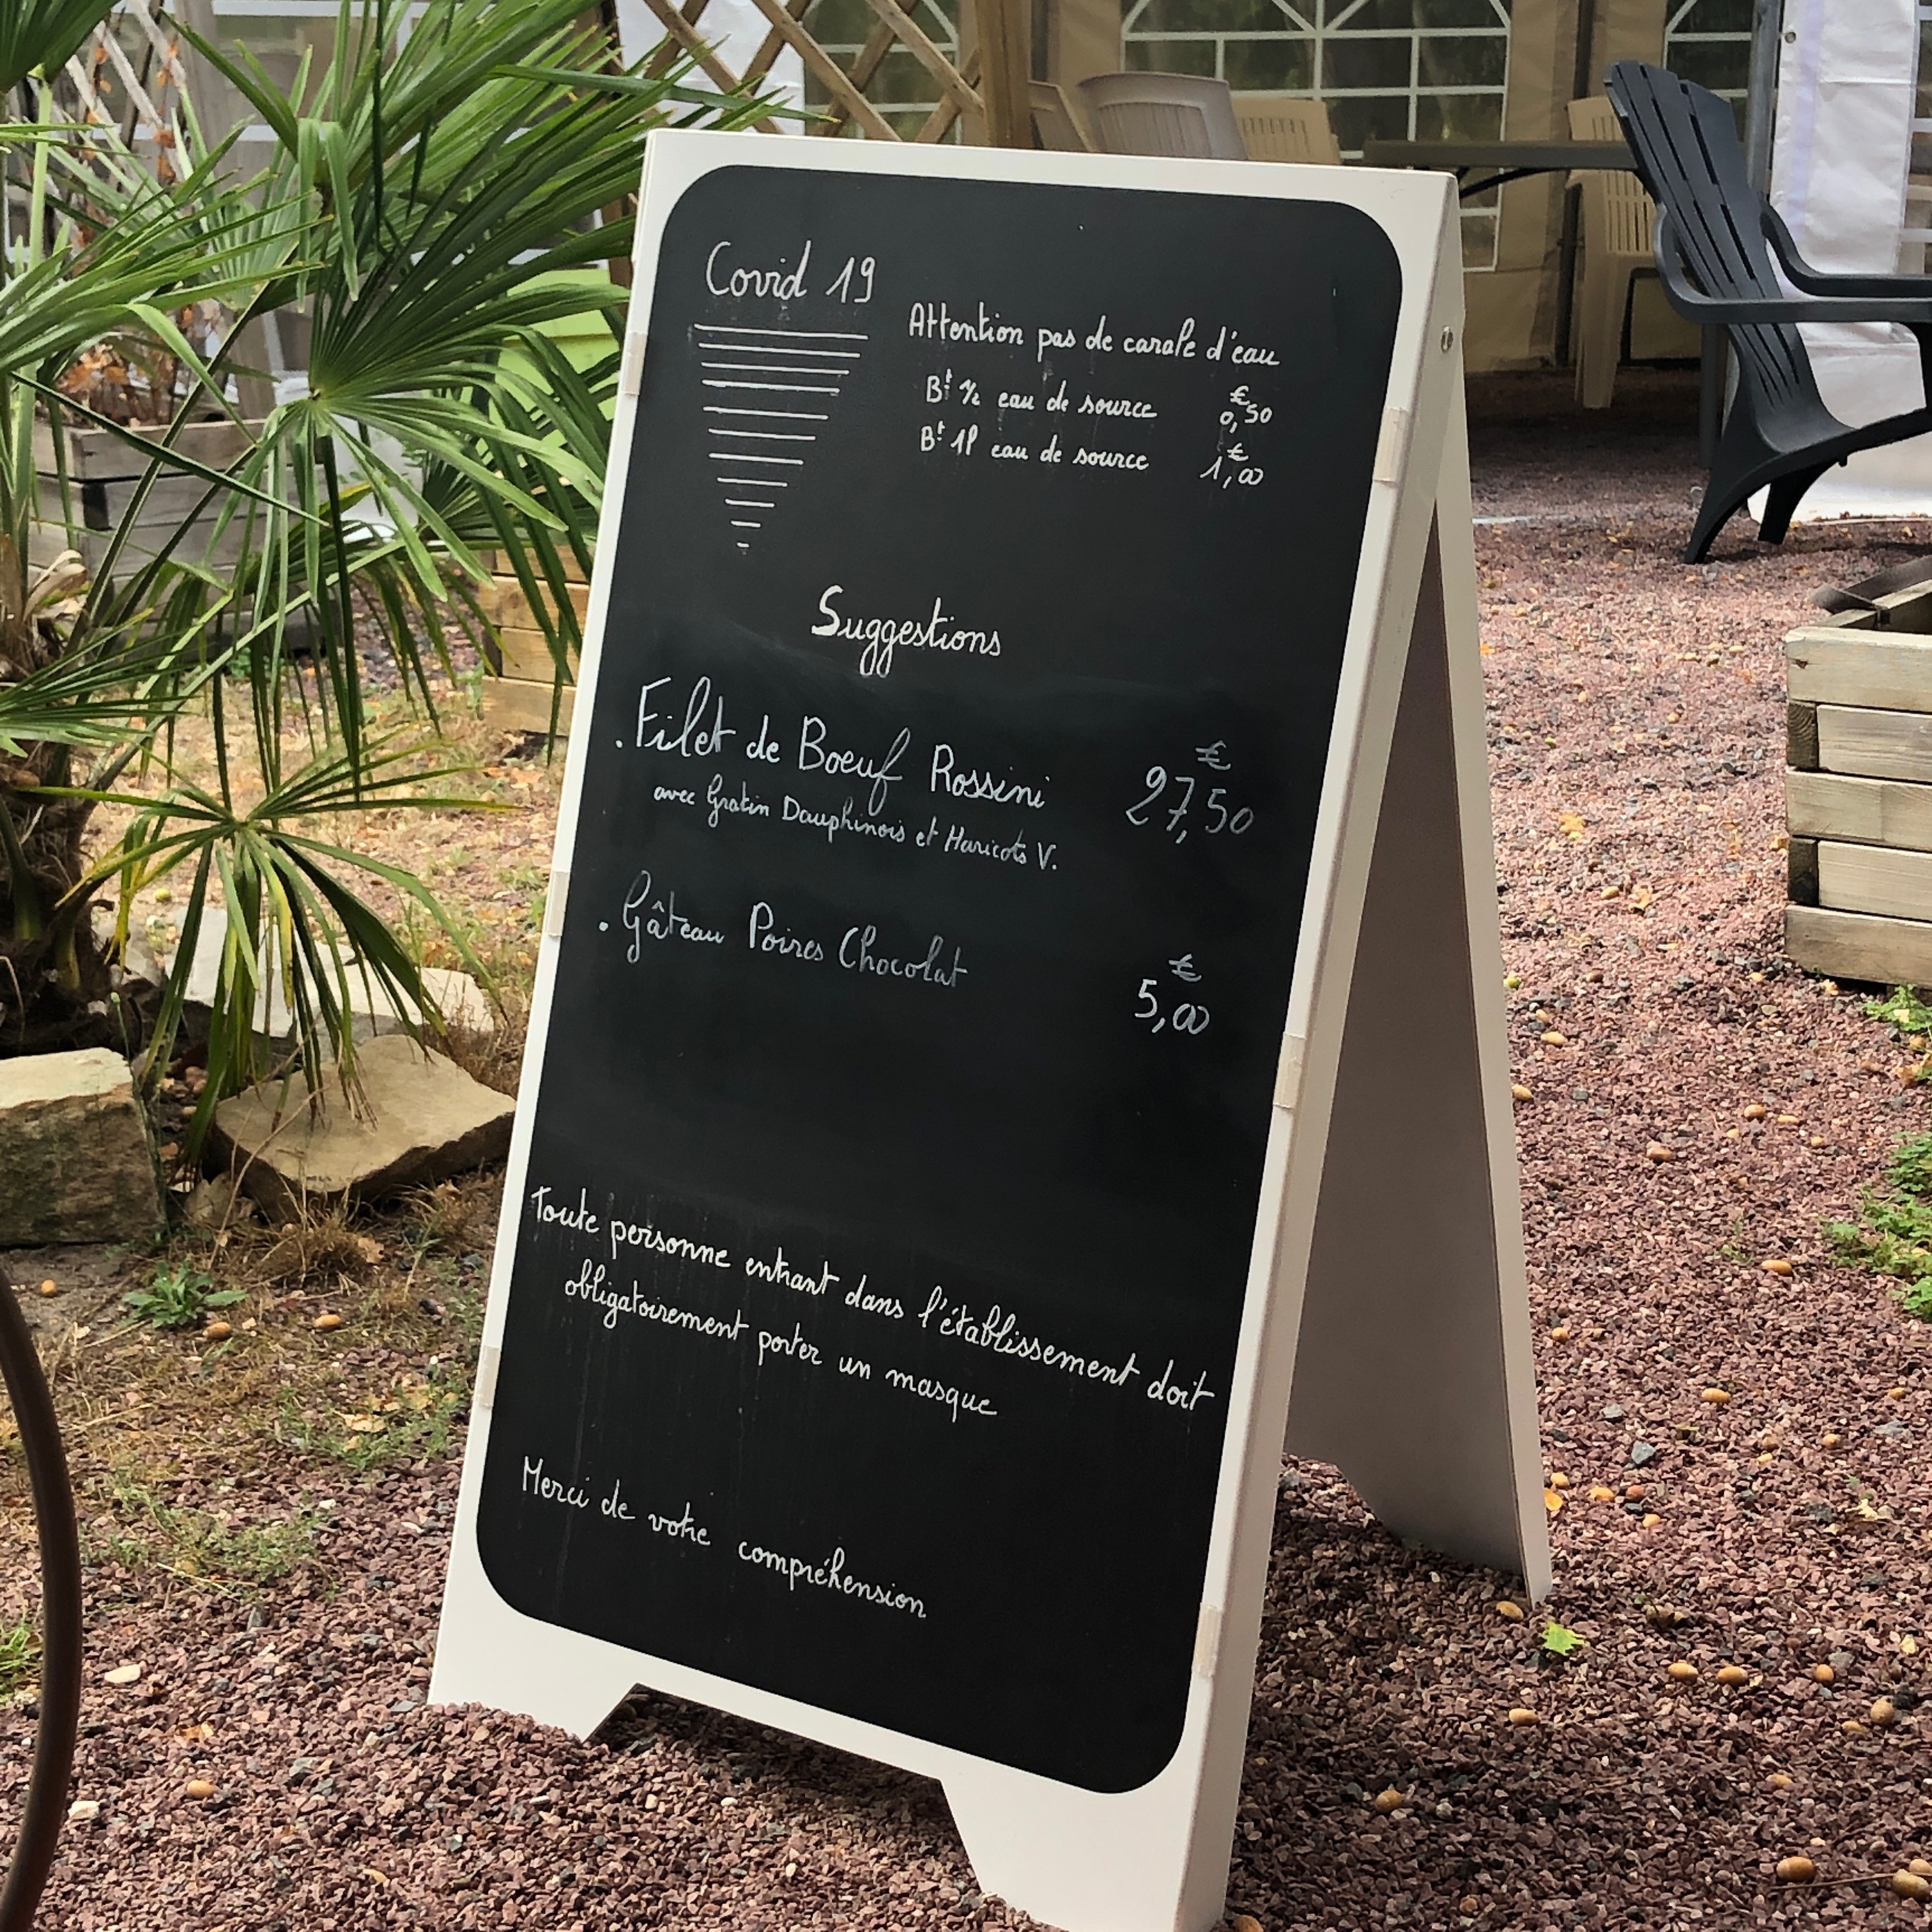 Covid 19
Attention pas de carafe d'eau
Bt ½ eau de source 0,50 €
Bt 1l eau de source 1,00 €
Suggestions
. Filet de Boeuf Rossini 27,50 €
avec Gratin Dauphinois et Haricots V.
. Gâteau Poires Chocolat 5,00 €
Toute personne entrant dans l'établissement doit
obligatoirement porter un masque
Merci de votre compréhension